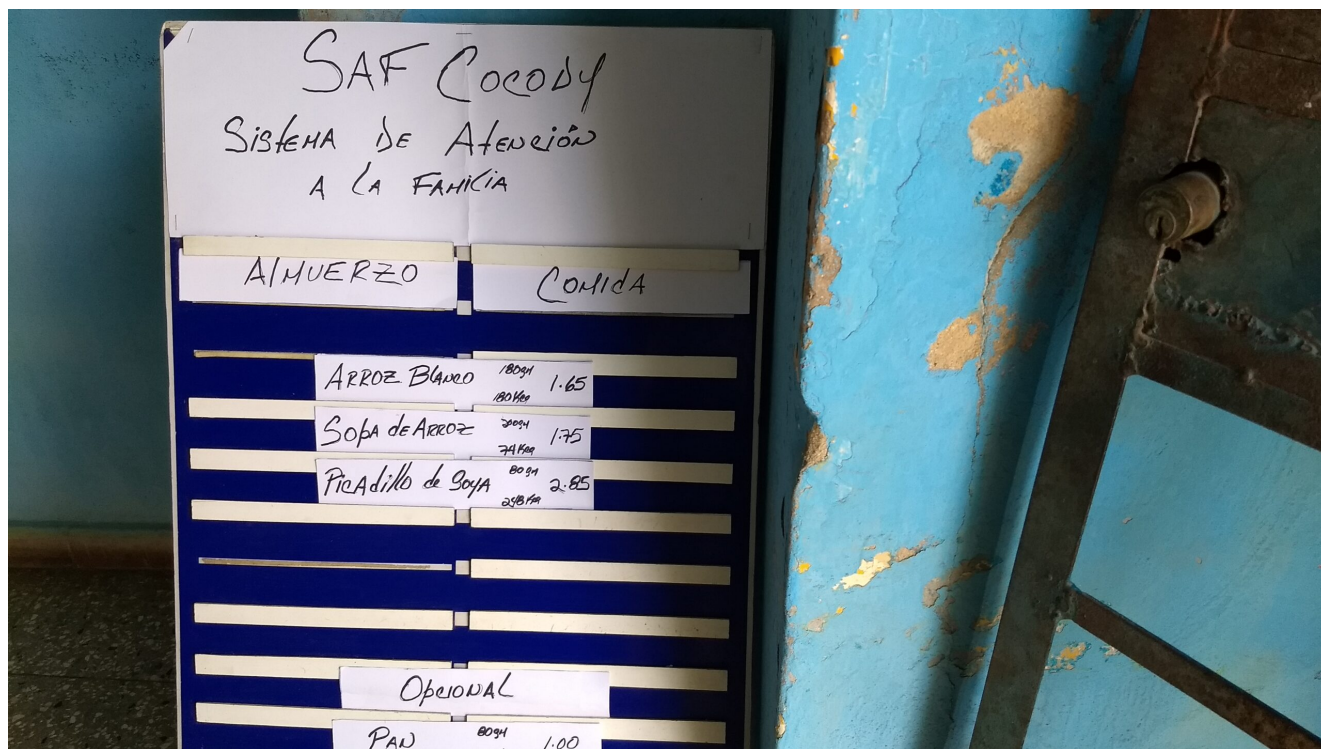 SAF COCODY
SistEMA DE AtENCIÓN
A LA FAMILIA
AlMUERZO
COMIdA
ARROZ BLANCO 180gr 1.65
180Kca
SOPA de ARROZ 1.75
74Kca
PicAdillo de SoyA 80gr 2.85
OpcIONAL
PAN 80gr 1.00